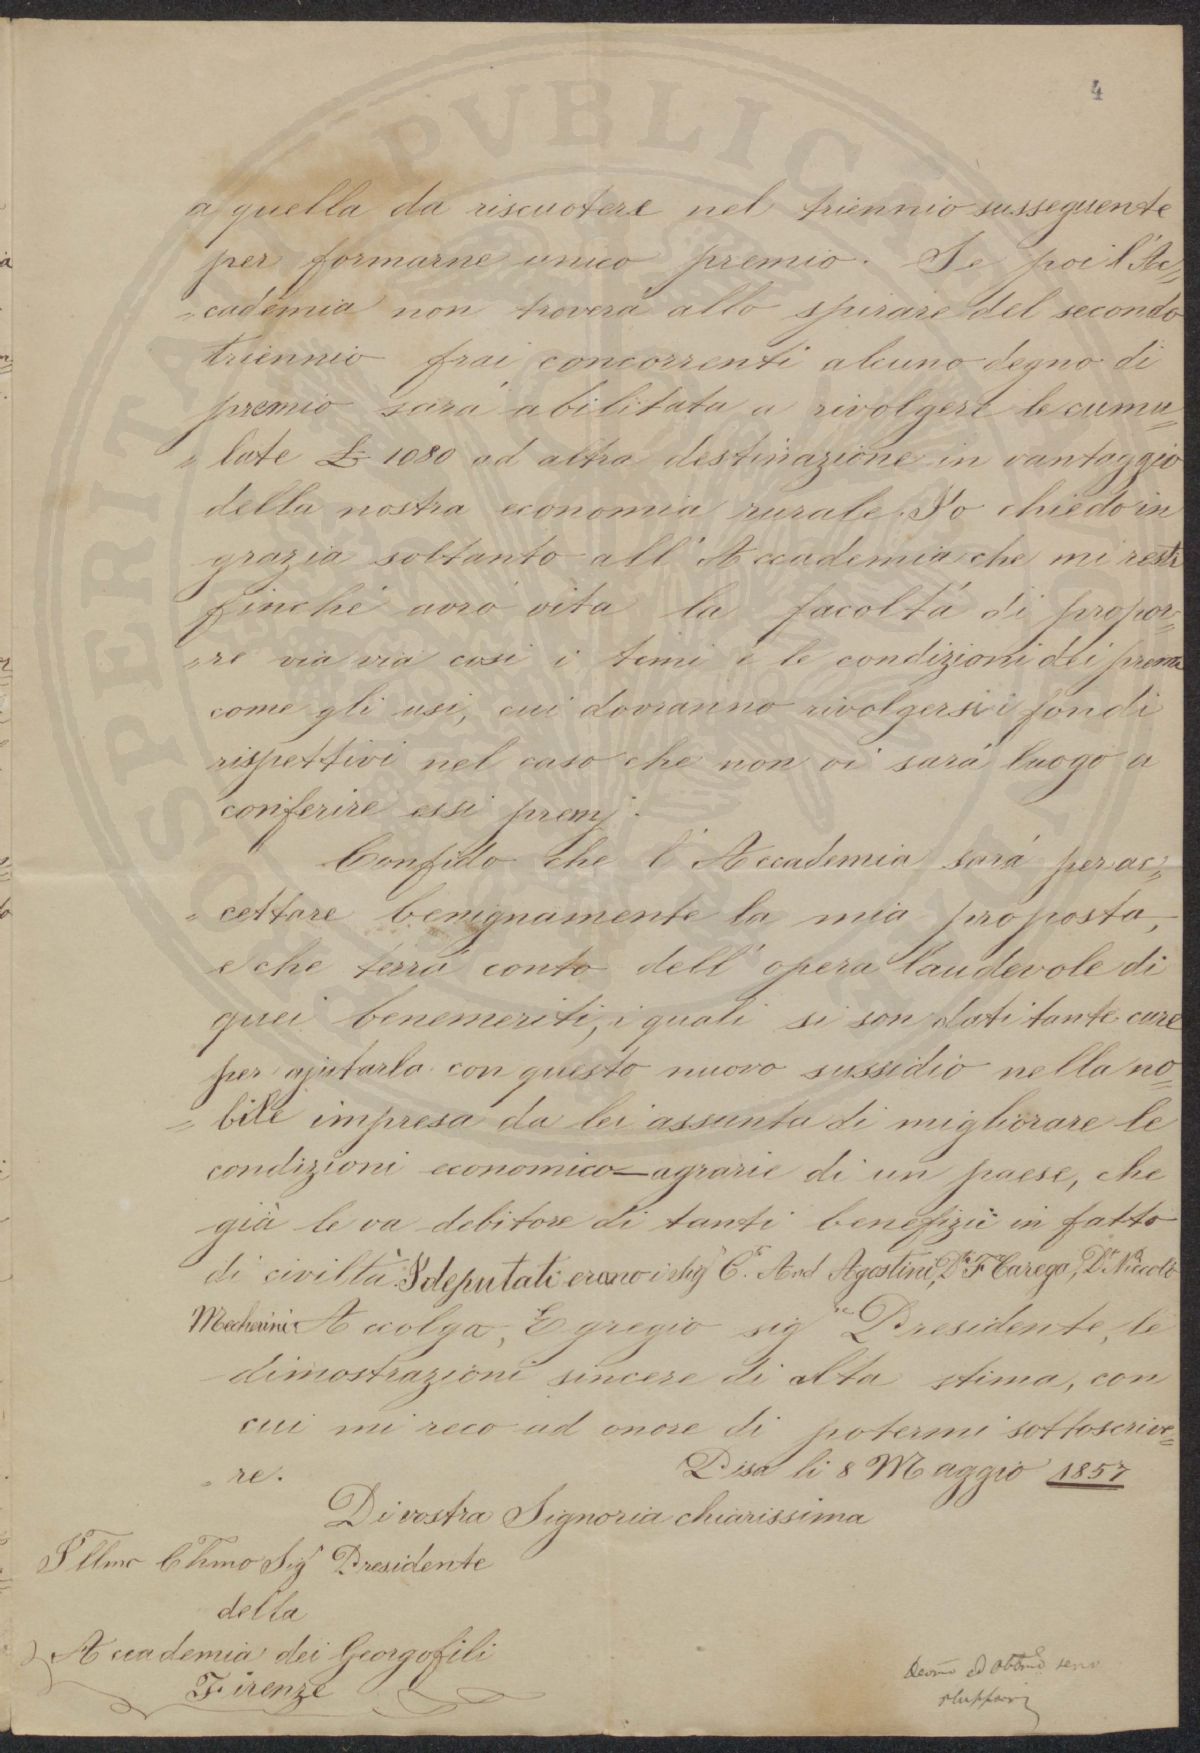 4
a quella da riscuotere nel triennio susseguente
per formarne unico premio. Se poi l'Ac=
=cademia non troverá allo spirare del secondo
triennio frai concorrenti alcuno degno di
premio sará abilitata a rivolgere le cumu=
=late £ 1080 ad altra destinazione in vantaggio
della nostra economia rurale. Io chiedo in
grazia soltanto all'Accademia che mi resti
finché avró vita la facoltá di propor=
=re via via cosi i temi e le condizioni dei premi
come gli usi, cui dovranno rivolgersi i fondi
rispettivi nel caso che non vi sará luogo a
conferire essi premj.
Confido che l'Accademia sará per ac=
=cettare benignamente la mia proposta,
e che terrá conto dell'opera laudevole di
quei benemeriti, i quali si son dati tante cure
per ajutarla con questo nuovo sussidio nella no=
=bile impresa da lei assunta di migliorare le
condizioni economico=agrarie di un paese, che
giá le va debitore di tanti benefizii in fatto
di civiltá. I deputati erano i Sigri C.e And Agostini, Dr. F. Carega, Dr. Niccolò
Mecherini Accolga, Egregio sig.re Presidente, le
dimostrazioni sincere di alta stima, con
cui mi reco ad onore di potermi sottoscrive=
=re.
Pisa li 8 Maggio 1857
Di vostra Signoria chiarissima
Illmo Chmo Sigr Presidente
della
Accademia dei Georgofili
Firenze
Devmo ed Obbmo servo
PROSPERITATI PVBLICAE